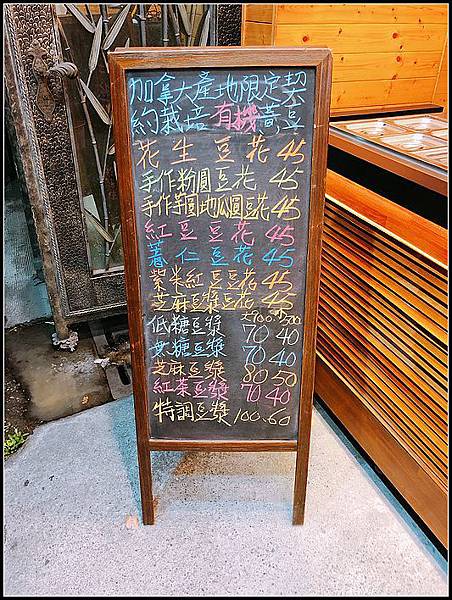 加拿大產地限定契
約栽培有機黃豆
花生豆花 45
手作粉圓豆花 45
手作芋圓地瓜圓豆花 45
紅豆豆花 45
薏仁豆花 45
紫米紅豆豆花 45
芝麻豆漿豆花 45
大700. 小500
低糖豆漿 70 40
無糖豆漿 70 40
芝麻豆漿 80 50
紅茶豆漿 70 40
特調豆漿 100.60